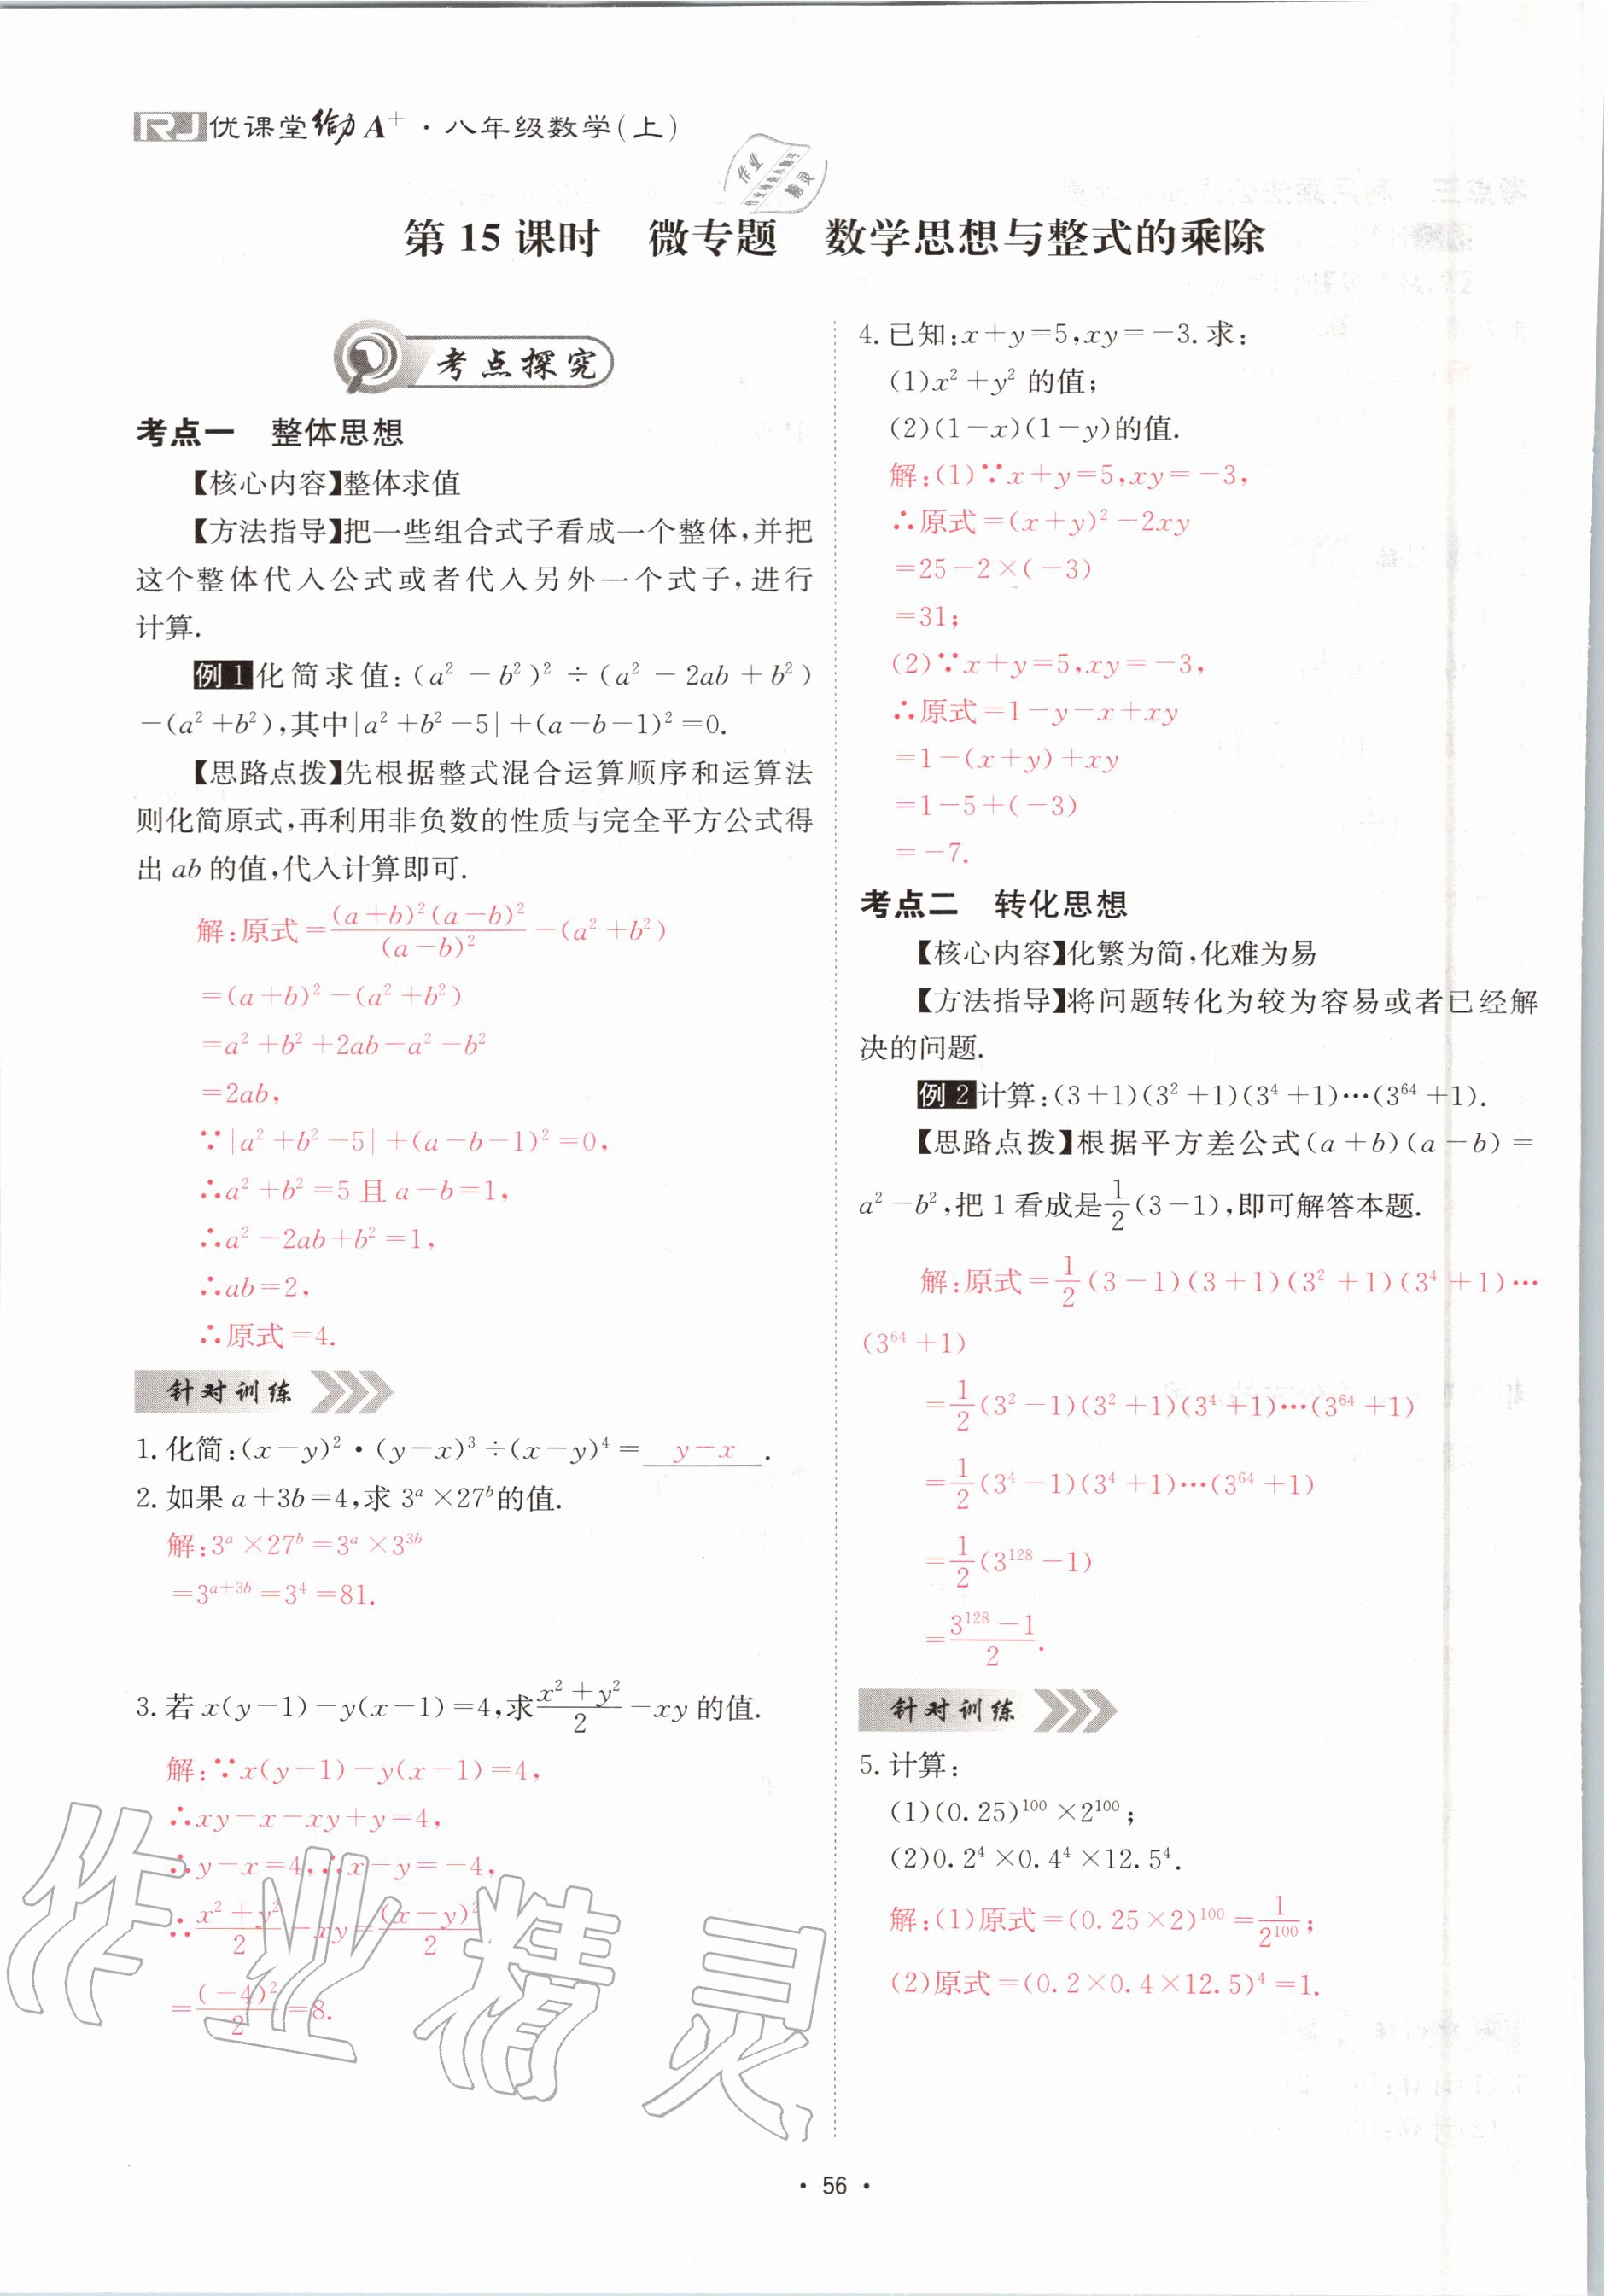 RJ优课堂给力A⁺·八年级数学(上)
第15课时 微专题 数学思想与整式的乘除
考点探究
考点一 整体思想
【核心内容】整体求值
【方法指导】把一些组合式子看成一个整体,并把
这个整体代入公式或者代入另外一个式子,进行
计算.
例1 化简求值:(a²-b²)²÷(a²-2ab+b²)
-(a²+b²),其中|a²+b²-5|+(a-b-1)²=0.
【思路点拨】先根据整式混合运算顺序和运算法
则化简原式,再利用非负数的性质与完全平方公式得
出ab的值,代入计算即可.
解:原式=\frac{(a+b)²(a-b)²}{(a-b)²}-(a²+b²)
=(a+b)²-(a²+b²)
=a²+b²+2ab-a²-b²
=2ab,
∵|a²+b²-5|+(a-b-1)²=0,
∴a²+b²=5且a-b=1,
∴a²-2ab+b²=1,
∴ab=2,
∴原式=4.
针对训练
1.化简:(x-y)²·(y-x)³÷(x-y)⁴= y-x .
2.如果a+3b=4,求3ᵃ×27ᵇ的值.
解:3ᵃ×27ᵇ=3ᵃ×3³ᵇ
=3ᵃ⁺³ᵇ=3⁴=81.
3.若x(y-1)-y(x-1)=4,求\frac{x²+y²}{2}-xy的值.
解:∵x(y-1)-y(x-1)=4,
∴xy-x-xy+y=4,
∴y-x=4,∴x-y=-4,
∴\frac{x²+y²}{2}-xy=\frac{(x-y)²}{2}
=\frac{(-4)²}{2}=8.
4.已知:x+y=5,xy=-3.求:
(1)x²+y²的值;
(2)(1-x)(1-y)的值.
解:(1)∵x+y=5,xy=-3,
∴原式=(x+y)²-2xy
=25-2×(-3)
=31;
(2)∵x+y=5,xy=-3,
∴原式=1-y-x+xy
=1-(x+y)+xy
=1-5+(-3)
=-7.
考点二 转化思想
【核心内容】化繁为简,化难为易
【方法指导】将问题转化为较为容易或者已经解
决的问题.
例2 计算:(3+1)(3²+1)(3⁴+1)…(3⁶⁴+1).
【思路点拨】根据平方差公式(a+b)(a-b)=
a²-b²,把1看成是\frac{1}{2}(3-1),即可解答本题.
解:原式=\frac{1}{2}(3-1)(3+1)(3²+1)(3⁴+1)…
(3⁶⁴+1)
=\frac{1}{2}(3²-1)(3²+1)(3⁴+1)…(3⁶⁴+1)
=\frac{1}{2}(3⁴-1)(3⁴+1)…(3⁶⁴+1)
=\frac{1}{2}(3¹²⁸-1)
=\frac{3¹²⁸-1}{2}.
针对训练
5.计算:
(1)(0.25)¹⁰⁰×2¹⁰⁰;
(2)0.2⁴×0.4⁴×12.5⁴.
解:(1)原式=(0.25×2)¹⁰⁰=\frac{1}{2¹⁰⁰};
(2)原式=(0.2×0.4×12.5)⁴=1.
作业精灵
·56·